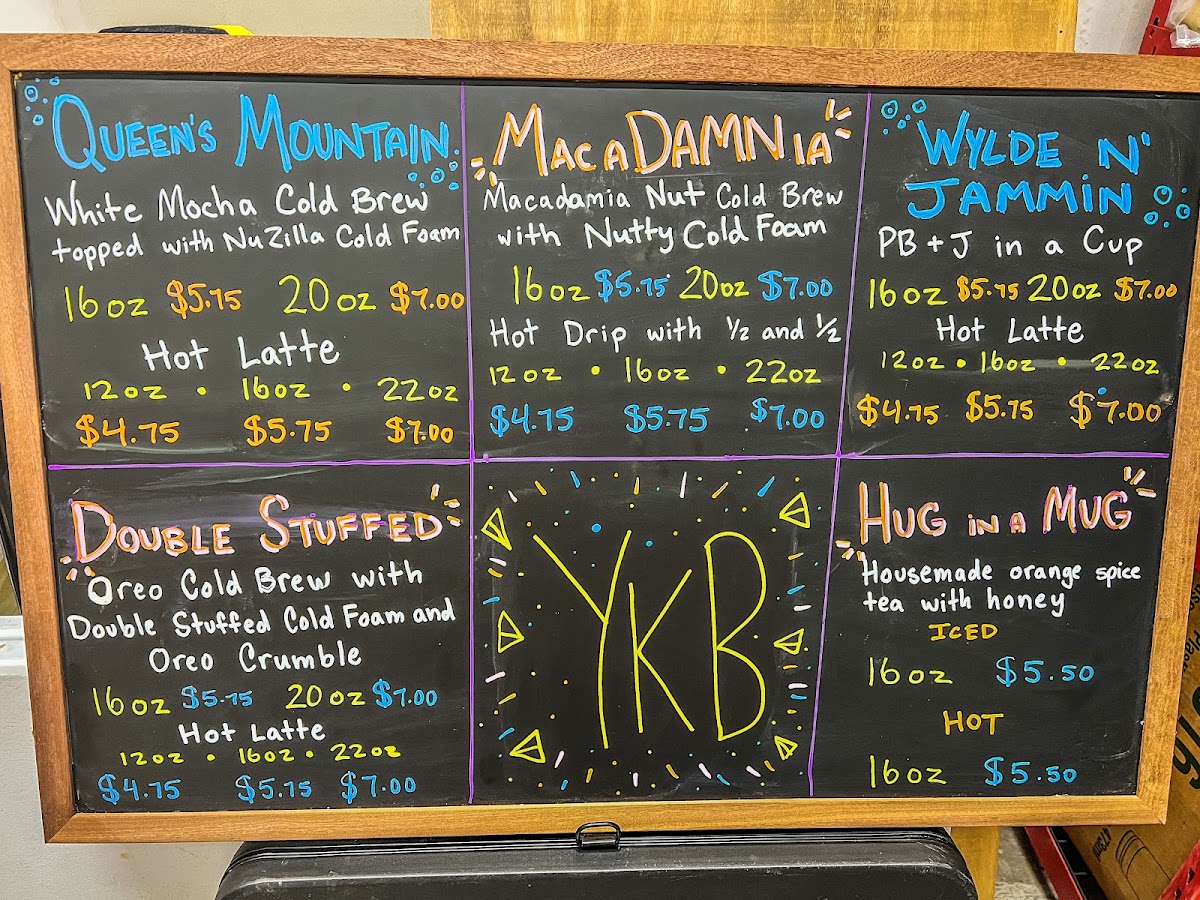 QUEEN'S MOUNTAIN
White Mocha Cold Brew
topped with NuZilla Cold Foam
16oz $5.75 20oz $7.00
Hot Latte
12oz • 16oz • 22oz
$4.75 $5.75 $7.00
MACADAMNIA
Macadamia Nut Cold Brew
with Nutty Cold Foam
16oz $5.75 20oz $7.00
Hot Drip with ½ and ½
12oz • 16oz • 22oz
$4.75 $5.75 $7.00
WYLDE N'
JAMMIN
PB+J in a Cup
16oz $5.75 20oz $7.00
Hot Latte
12oz • 16oz • 22oz
$4.75 $5.75 $7.00
DOUBLE STUFFED
Oreo Cold Brew with
Double Stuffed Cold Foam and
Oreo Crumble
16oz $5.75 20oz $7.00
Hot Latte
12oz • 16oz • 22oz
$4.75 $5.75 $7.00
YKB
HUG IN A MUG
Housemade orange spice
tea with honey
ICED
16oz $5.50
HOT
16oz $5.50